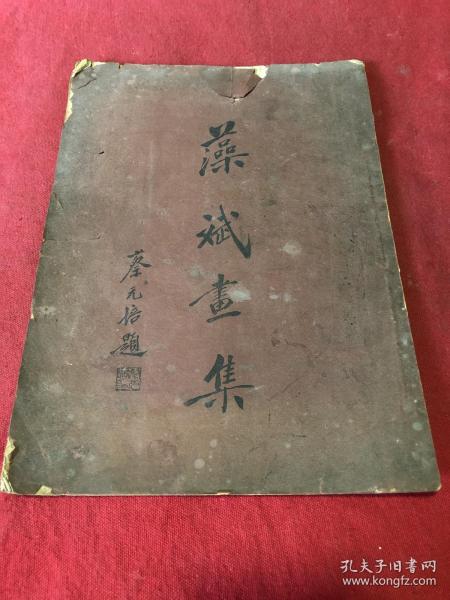 藻斌畫集
蔡元培題
孔夫子旧書网
www.kongfz.com